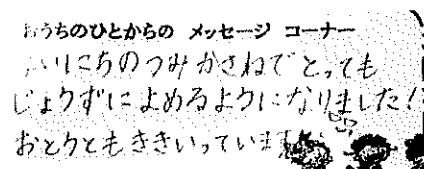 おうちのひとからの メッセージ コーナー
まいにちのつみかさねでとっても
じょうずによめるようになりました!
おとうともききいっています